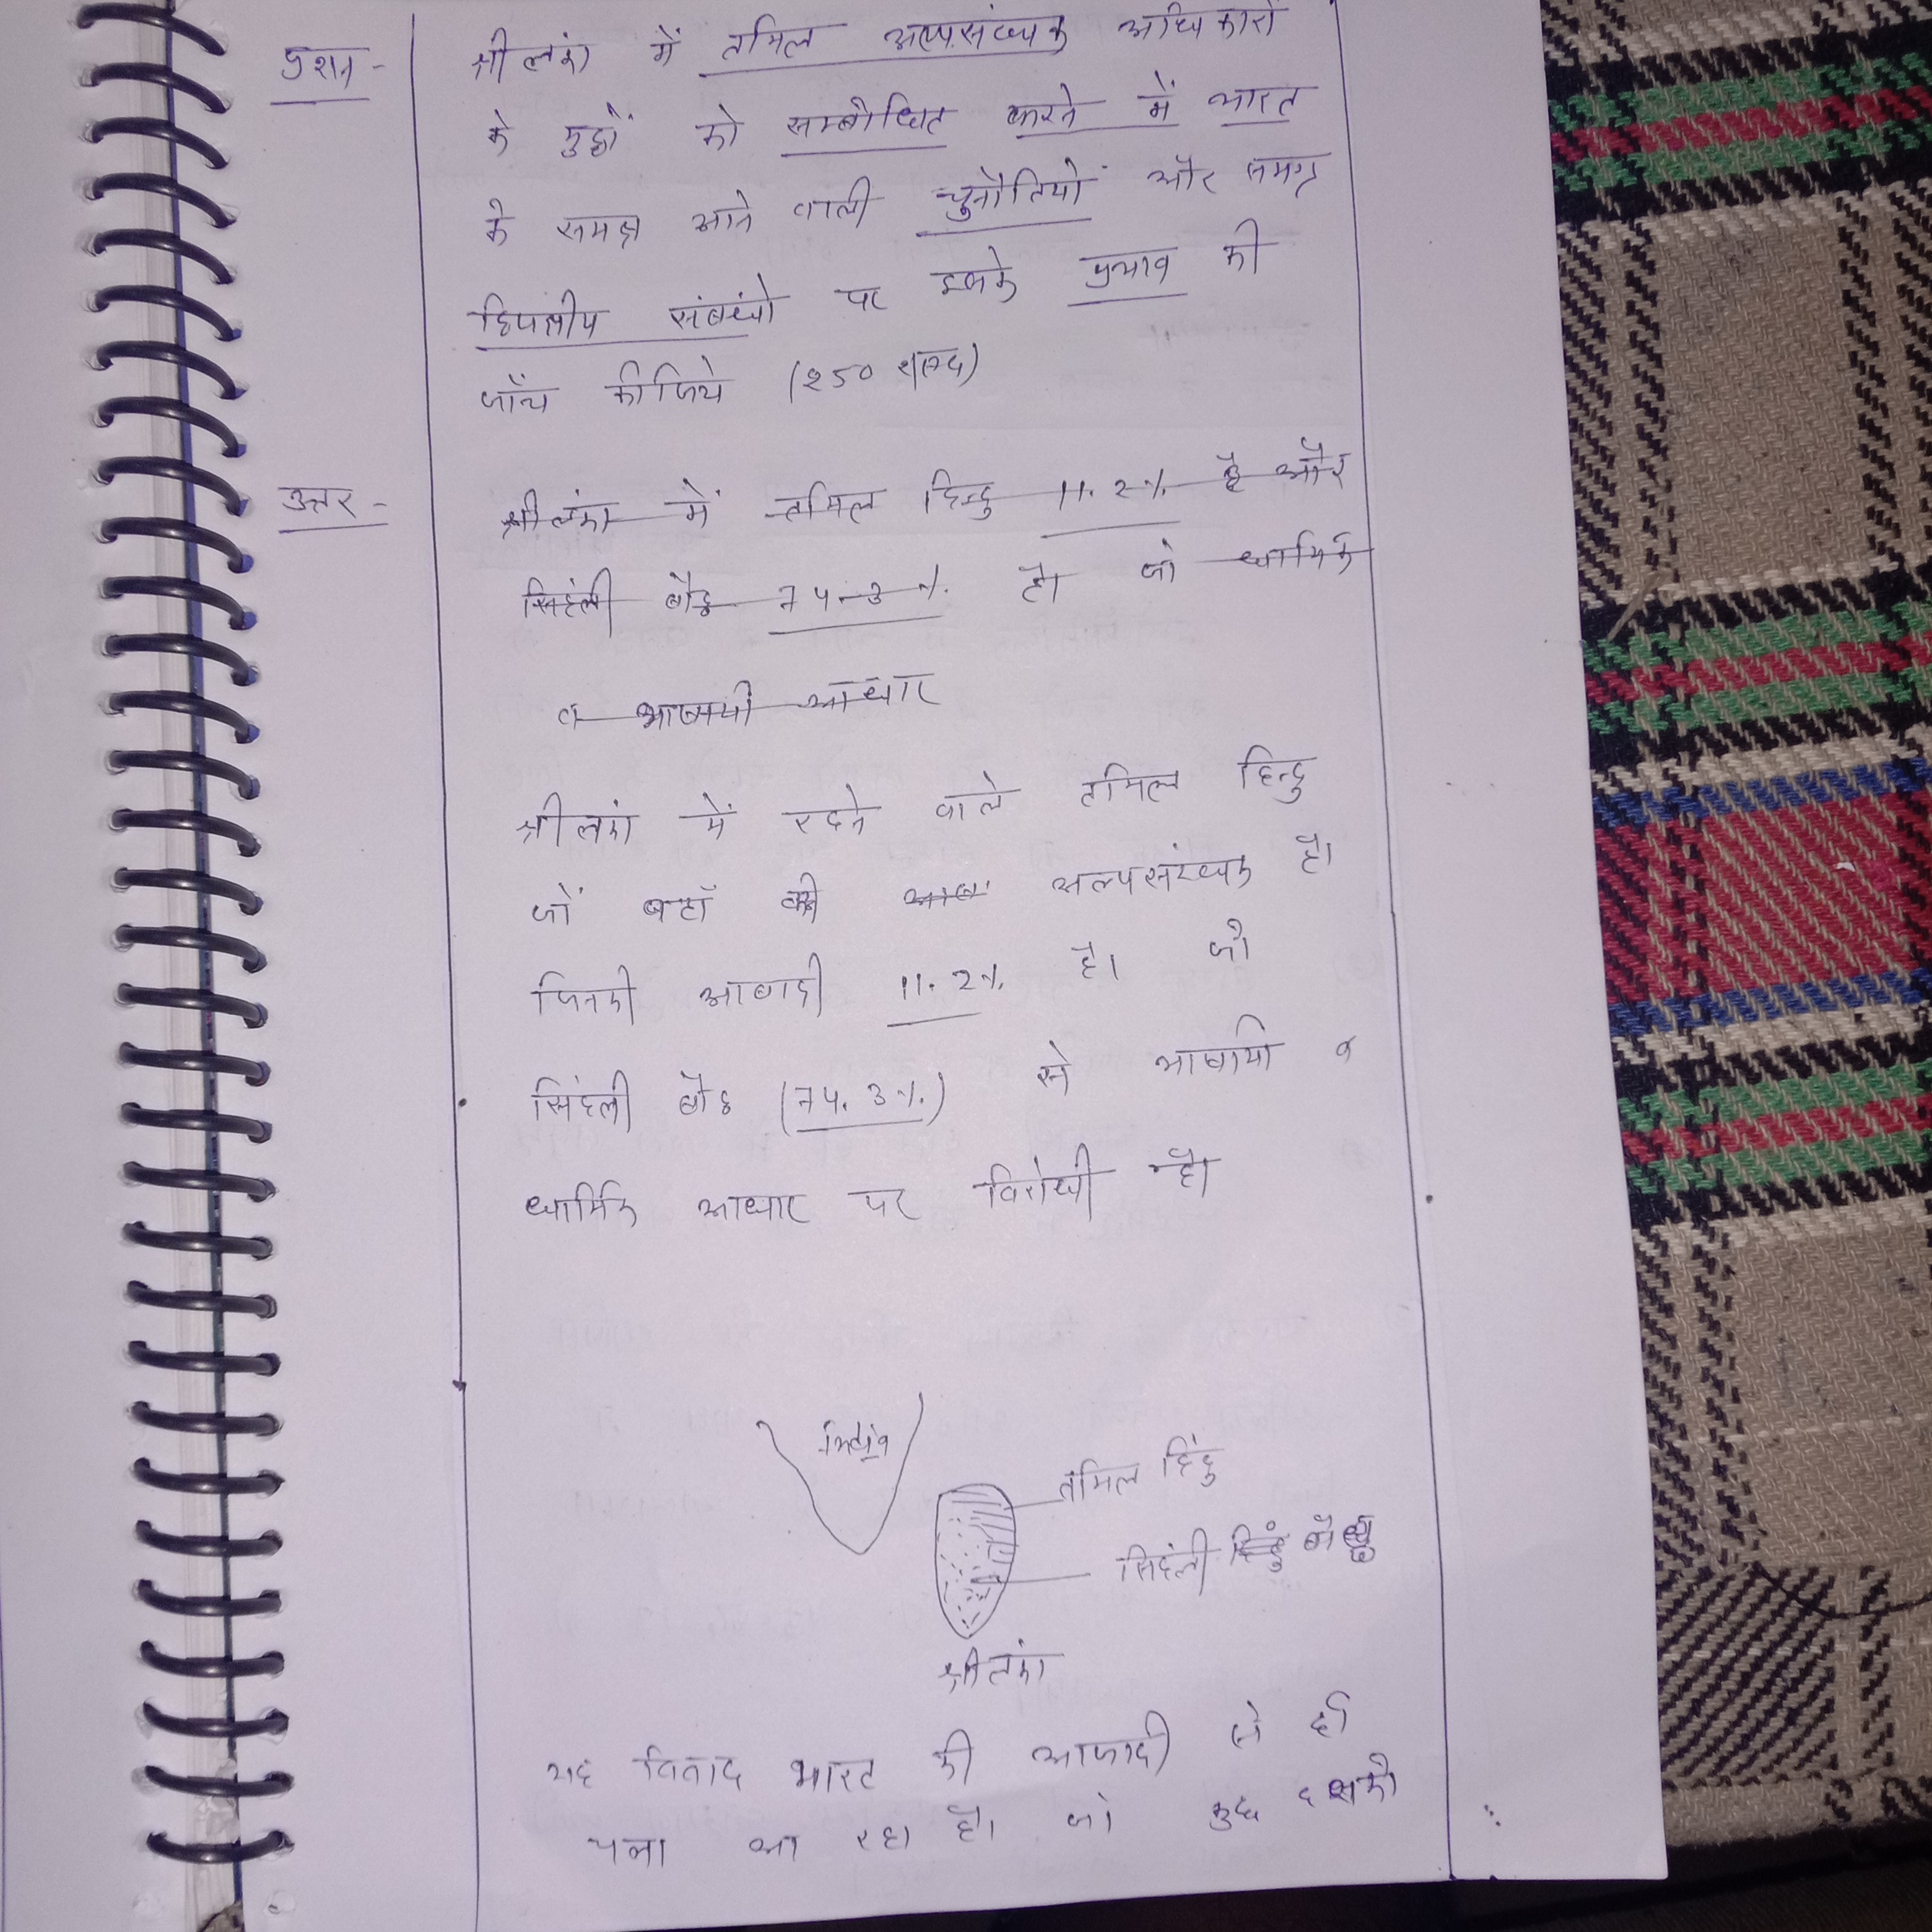 प्रश्न -
श्रीलंका में तमिल अल्पसंख्यक अधिकारों
के मुद्दों को सम्बोधित करने में भारत
के समक्ष आने वाली चुनौतियों और समग्र
द्विपक्षीय संबंधो पर इसके प्रभाव की
जाँच कीजिये (250 शब्द)
उत्तर -
श्रीलंका में तमिल हिन्दु 11.2% है और
सिंहली बौद्ध 74.3% है। जो धार्मिक
व भाषायी आधार
श्रीलंका में रहने वाले तमिल हिन्दु
जों वहाँ की अल्पसंख्यक है।
जिनकी आबादी 11.2% है। जो
सिंहली बौद्ध (74.3%) से भाषायी व
धार्मिक आधार पर विरोधी है।
तमिल हिंदु
सिंहली हिंदु बौद्ध
श्रीलंका
यह विवाद भारत की आजादी से ही
चला आ रहा है। जो कुछ दशको